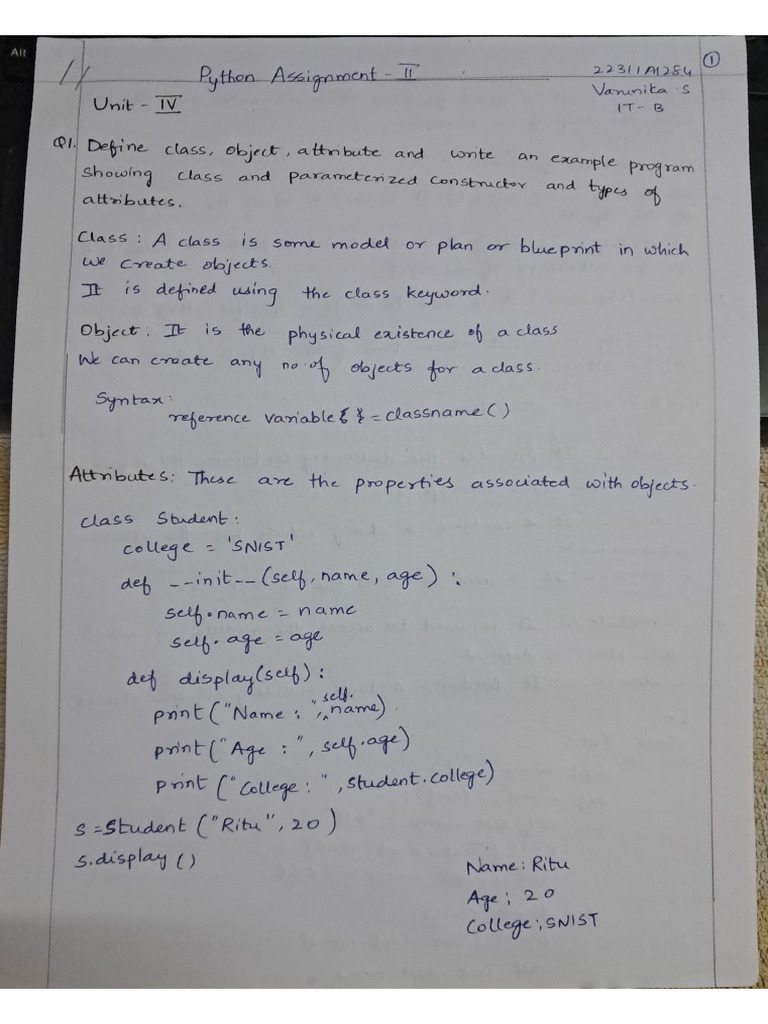 Alt
1
Python Assignment - II
22311A1284
Varunika S
IT - B
Unit - IV
Q1. Define class, object, attribute and write an example program
showing class and parameterized constructor and types of
attributes.
Class : A class is some model or plan or blueprint in which
we create objects.
It is defined using the class keyword.
Object : It is the physical existence of a class
We can create any no. of objects for a class.
Syntax :
reference variable { } = classname ( )
Attributes : These are the properties associated with objects.
class Student :
college = 'SNIST'
def __init__ (self, name, age) :
self.name = name
self.age = age
def display(self) :
print("Name : ", self.name)
print("Age : ", self.age)
print("College : ", Student.college)
s = Student ("Ritu", 20)
s.display ()
Name : Ritu
Age ; 20
College ; SNIST